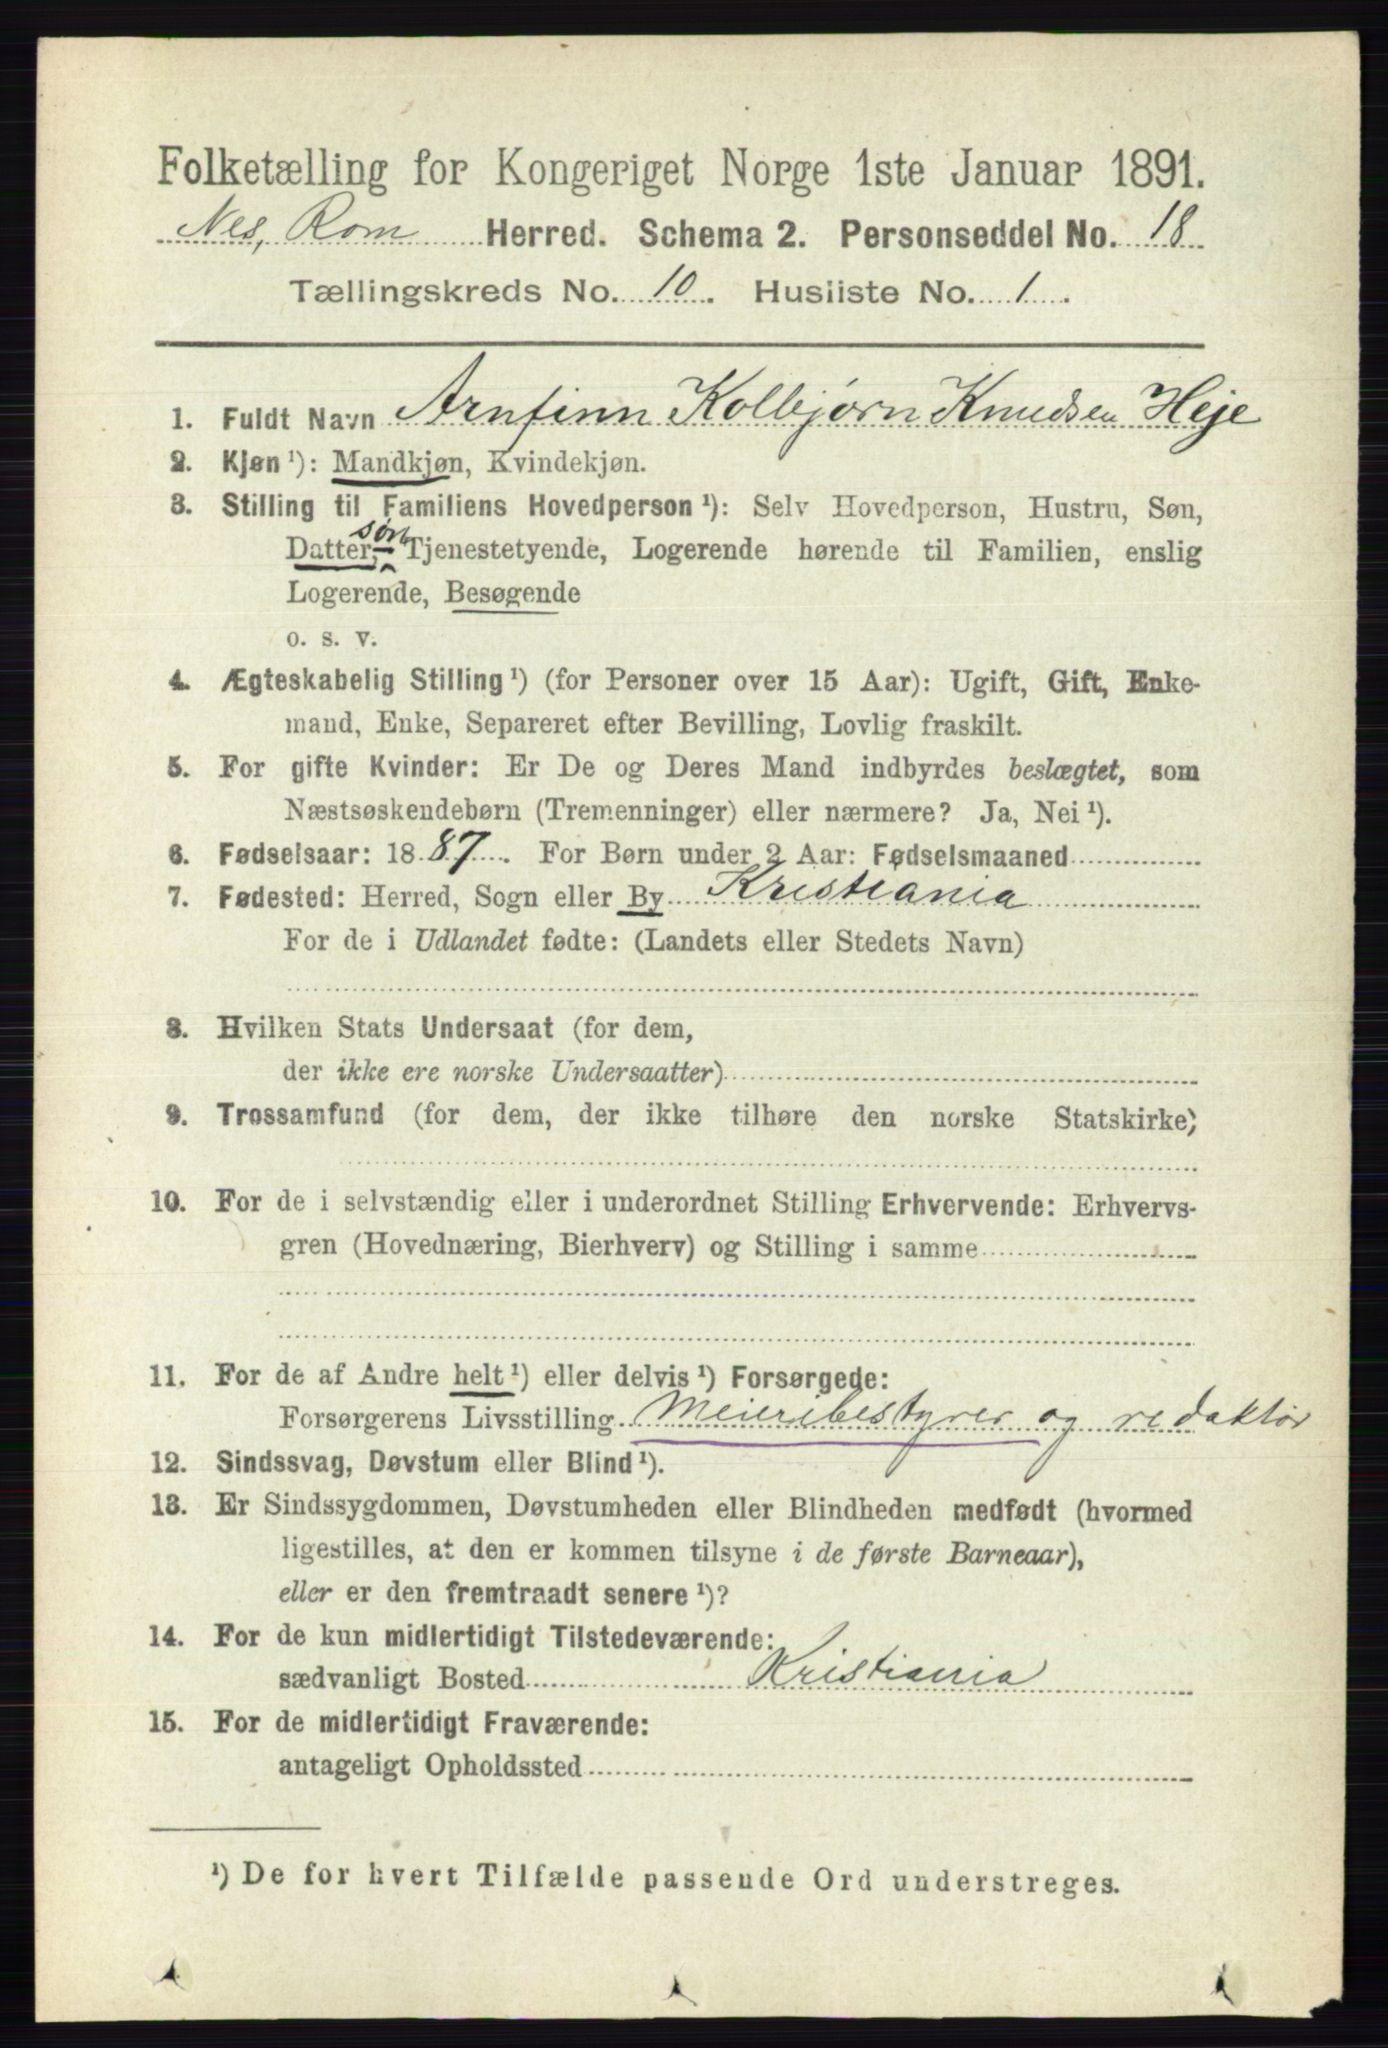 Folketælling for Kongeriget Norge 1ste Januar 1891.
Nes, Rom Herred. Schema 2. Personseddel No. 18
Tællingskreds No. 10. Husliste No. 1.
1. Fuldt Navn Arnfinn Kolbjørn Knudsen Heje
2. Kjøn ¹): Mandkjøn, Kvindekjøn.
3. Stilling til Familiens Hovedperson ¹): Selv Hovedperson, Hustru, Søn,
søn
Datter, Tjenestetyende, Logerende hørende til Familien, enslig
Logerende, Besøgende
o. s. v.
4. Ægteskabelig Stilling ¹) (for Personer over 15 Aar): Ugift, Gift, Enke-
mand, Enke, Separeret efter Bevilling, Lovlig fraskilt.
5. For gifte Kvinder: Er De og Deres Mand indbyrdes beslægtet, som
Næstsøskendebørn (Tremenninger) eller nærmere? Ja, Nei ¹).
6. Fødselsaar: 1887. For Børn under 2 Aar: Fødselsmaaned
7. Fødested: Herred, Sogn eller By Kristiania
For de i Udlandet fødte: (Landets eller Stedets Navn)
8. Hvilken Stats Undersaat (for dem,
der ikke ere norske Undersaatter)
9. Trossamfund (for dem, der ikke tilhøre den norske Statskirke)
10. For de i selvstændig eller i underordnet Stilling Erhvervende: Erhvervs-
gren (Hovednæring, Bierhverv) og Stilling i samme
11. For de af Andre helt ¹) eller delvis ¹) Forsørgede:
Forsørgerens Livsstilling Meieribestyrer og redaktør
12. Sindssvag, Døvstum eller Blind ¹).
13. Er Sindssygdommen, Døvstumheden eller Blindheden medfødt (hvormed
ligestilles, at den er kommen tilsyne i de første Barneaar),
eller er den fremtraadt senere ¹)?
14. For de kun midlertidigt Tilstedeværende:
sædvanligt Bosted Kristiania
15. For de midlertidigt Fraværende:
antageligt Opholdssted
¹) De for hvert Tilfælde passende Ord understreges.